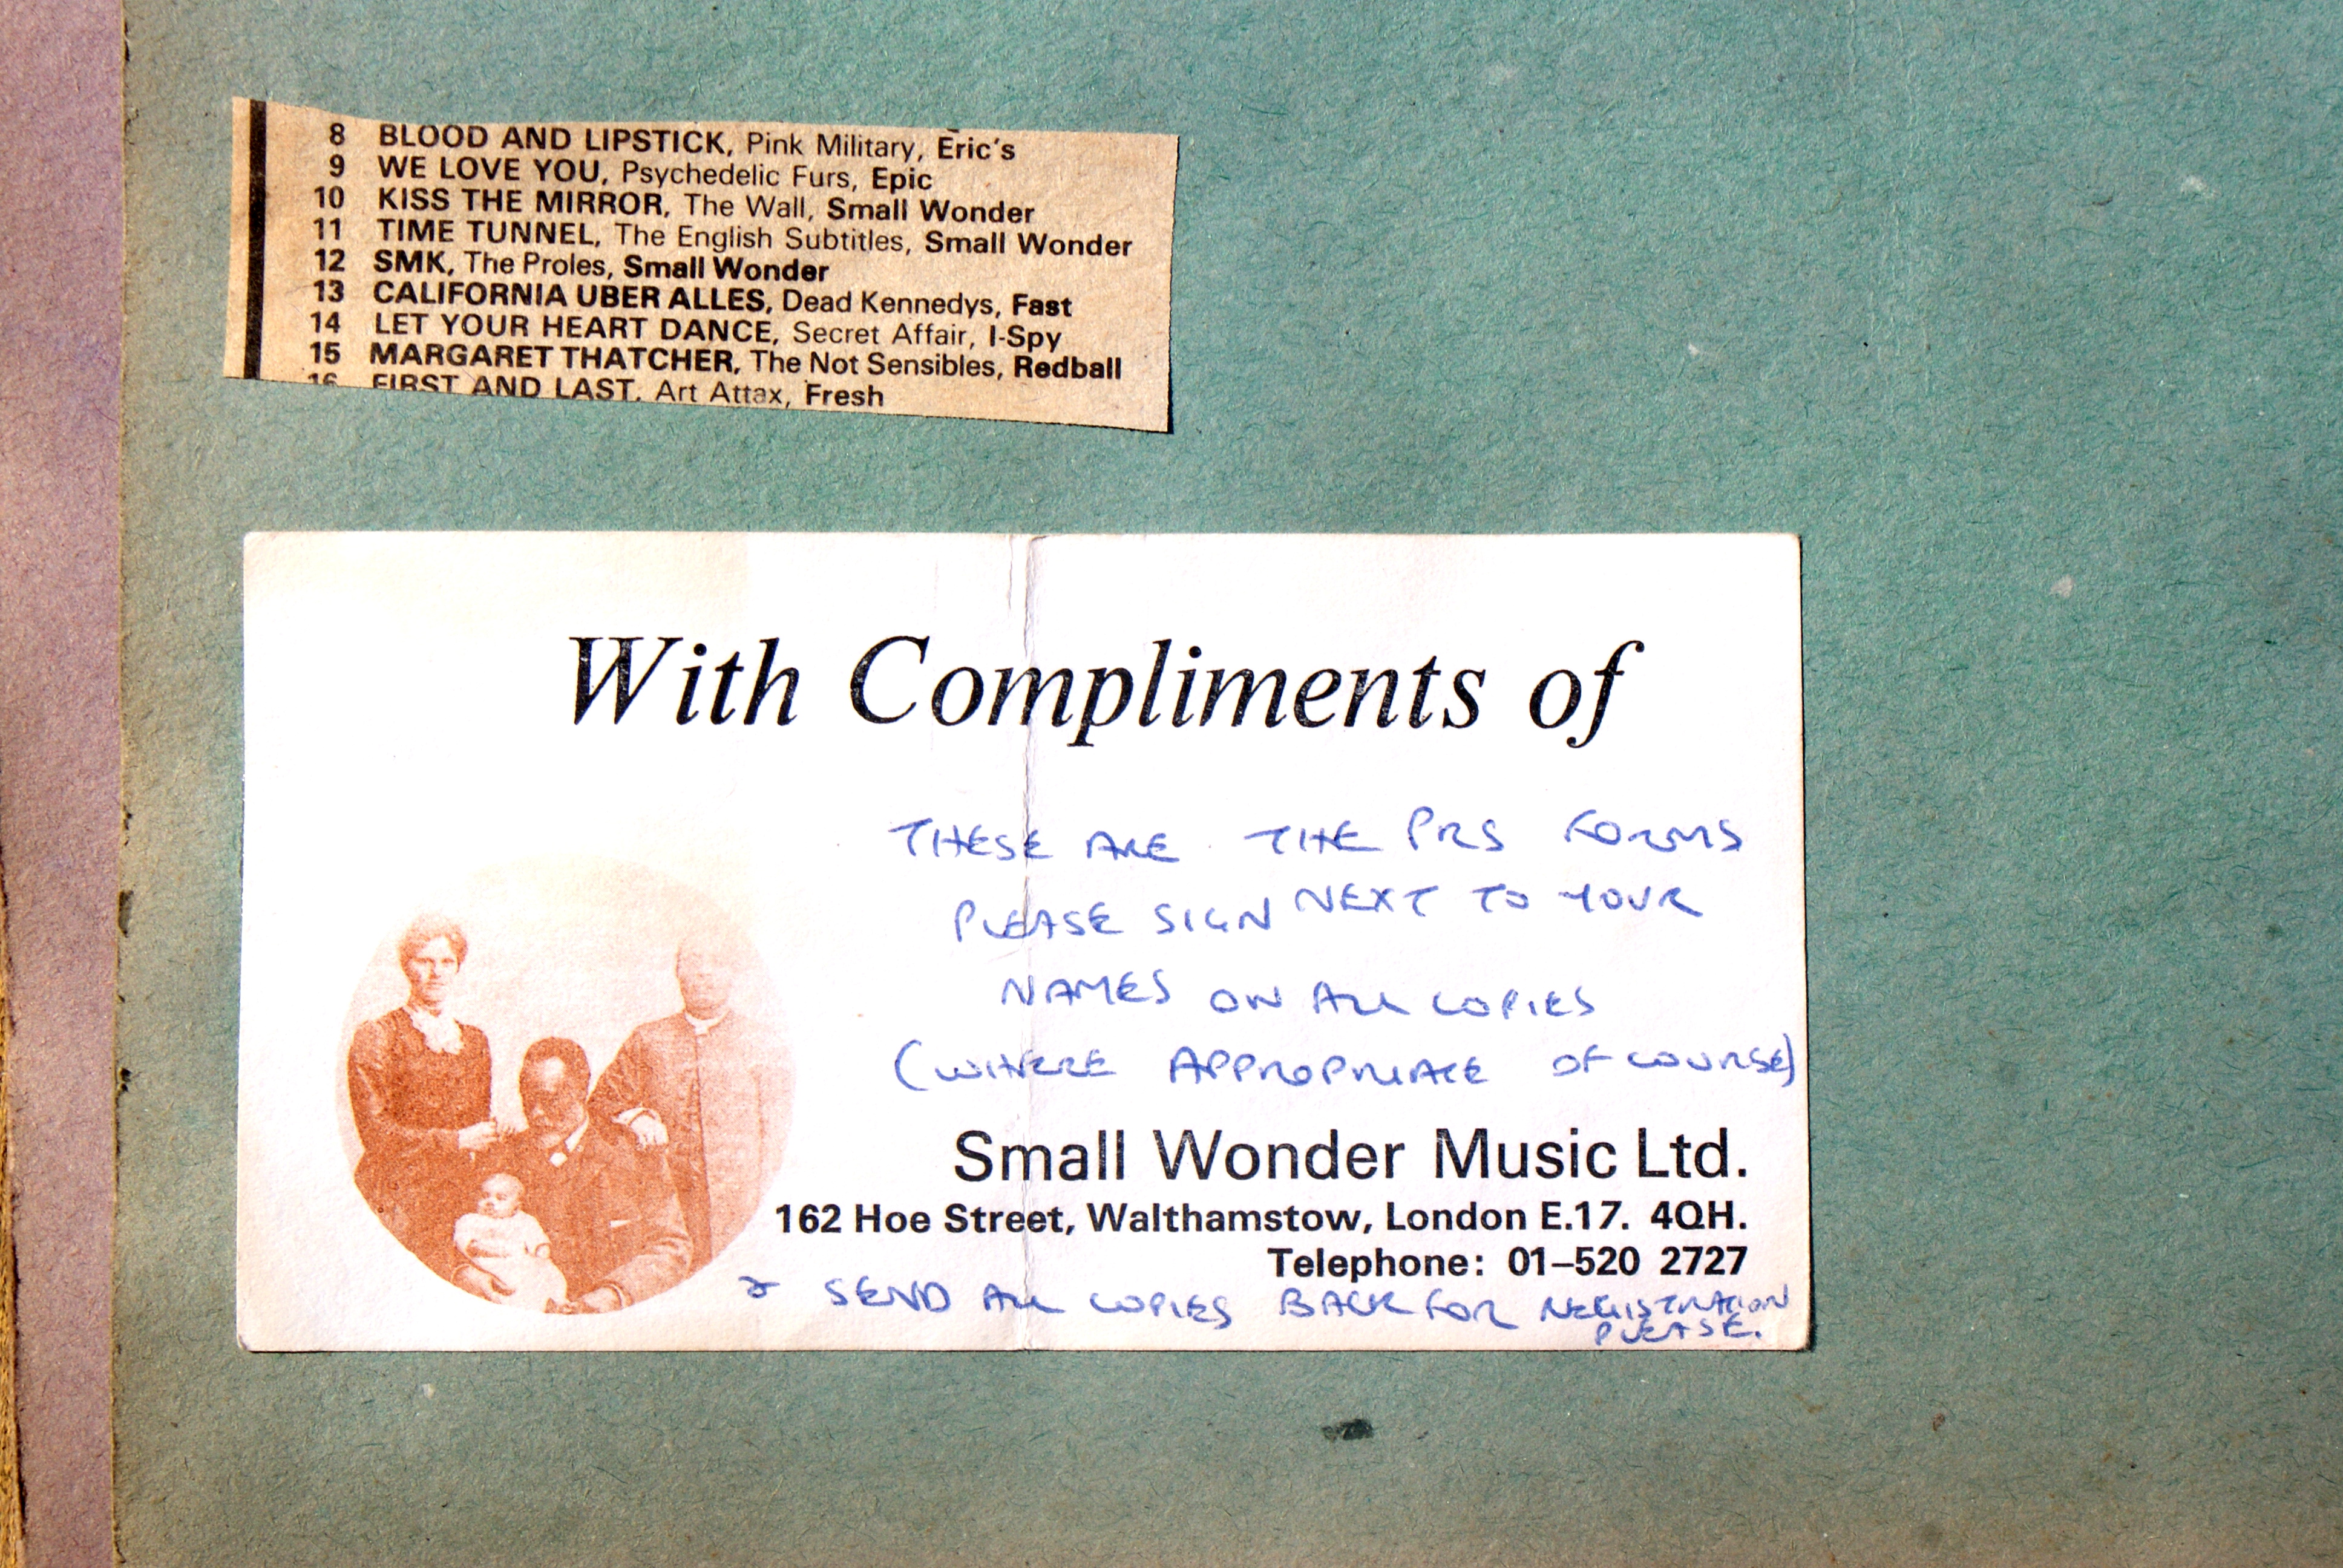 8 BLOOD AND LIPSTICK, Pink Military, Eric's
9 WE LOVE YOU, Psychedelic Furs, Epic
10 KISS THE MIRROR, The Wall, Small Wonder
11 TIME TUNNEL, The English Subtitles, Small Wonder
12 SMK, The Proles, Small Wonder
13 CALIFORNIA UBER ALLES, Dead Kennedys, Fast
14 LET YOUR HEART DANCE, Secret Affair, I-Spy
15 MARGARET THATCHER, The Not Sensibles, Redball
16 FIRST AND LAST, Art Attax, Fresh
With Compliments of
THESE ARE THE PRS FORMS
PLEASE SIGN NEXT TO YOUR
NAMES ON ALL COPIES
(WHERE APPROPRIATE OF COURSE)
Small Wonder Music Ltd.
162 Hoe Street, Walthamstow, London E.17. 4QH.
Telephone: 01–520 2727
& SEND ALL COPIES BACK FOR REGISTRATION
PLEASE.